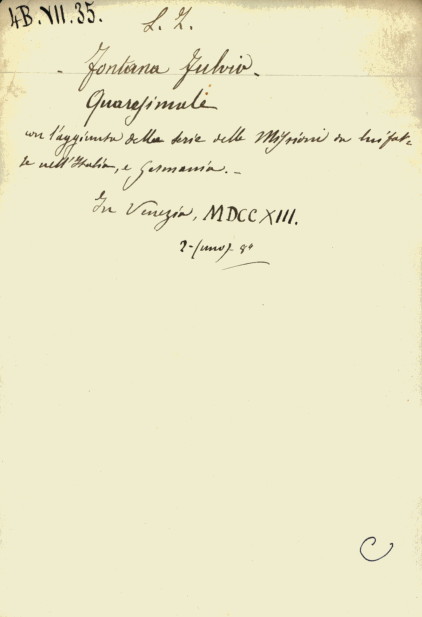 4B.VII.35.
L. Z.
Fontana Fulvio.
Quaresimale
con l'aggiunta della serie delle Missioni da lui fat-
te nell'Italia, e Germania.-
In Venezia, MDCCXIII.
8º
C